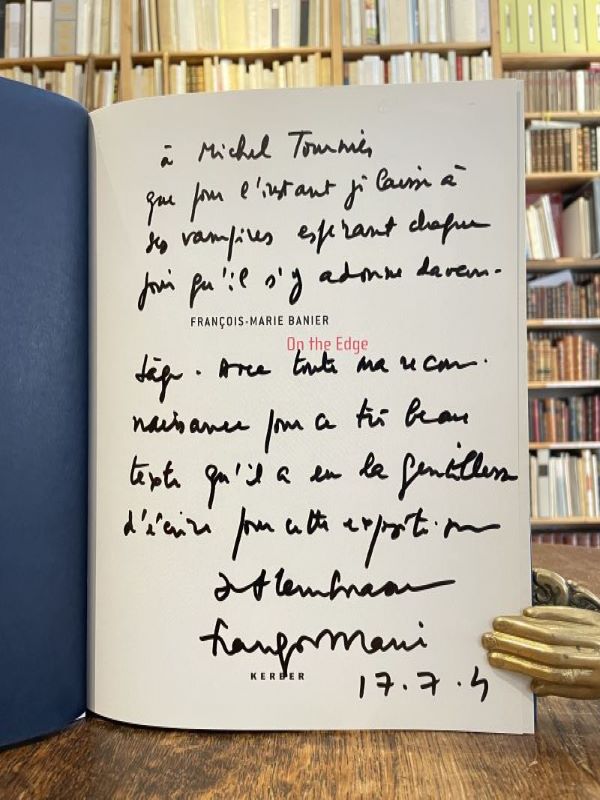 à Michel Tournier
que pour l'instant je laisse à
ses vampires espérant chaque
jour qu'il s'y adonne davan-
FRANÇOIS-MARIE BANIER
On the Edge
tage. Avec toute ma recon-
naissance pour ce très beau
texte qu'il a eu la gentillesse
d'écrire pour cette exposition
François Marie
KERBER
17.7.4